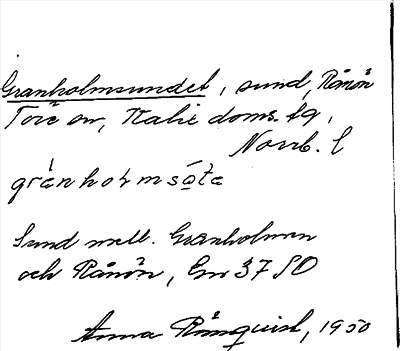 Granholmsundet, sund, Rånön
Töre sn, Kalix doms. tg,
Norrb. l
Sund mell. Granholmen
och Rånön, Gru 37 SO
Anna Rönnquist, 1950